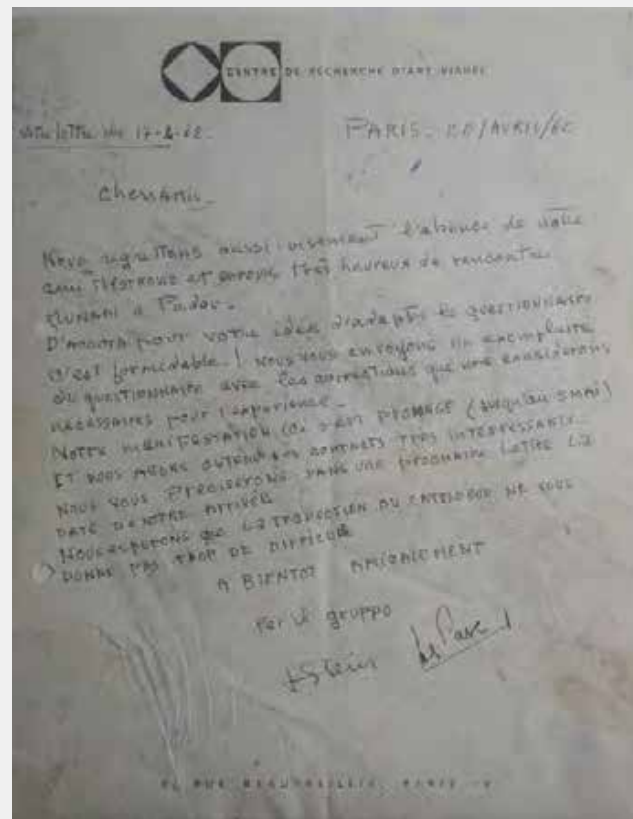 CENTRE DE RECHERCHE D'ART VISUEL
17-4-62
PARIS. 20/AVRIL/62
Chers Amis
Nous regrettons aussi vivement l'absence de notre
ami et serons très heureux de rencontrer
MUNARI à
D'accord pour votre idée d'adapter le QUESTIONNAIRE
C'est formidable! Nous vous envoyons un exemplaire
du QUESTIONNAIRE avec les que nous considérons
nécessaires pour l'expérience.
NOTRE MANIFESTATION ICI S'EST (jusqu'au 5 MAI)
ET NOUS AVONS CONTACTS TRES INTERESSANTS.
NOUS VOUS PRECISERONS DANS UNE PROCHAINE LETTRE LA
DATE DE NOTRE ARRIVEE
NOUS ESPERONS QUE LA DU CATALOGUE NE VOUS
DONNE PAS TROP DE
A BIENTOT AMICALEMENT
Per il gruppo
Stein Le Parc
RUE BEAUTREILLIS, PARIS